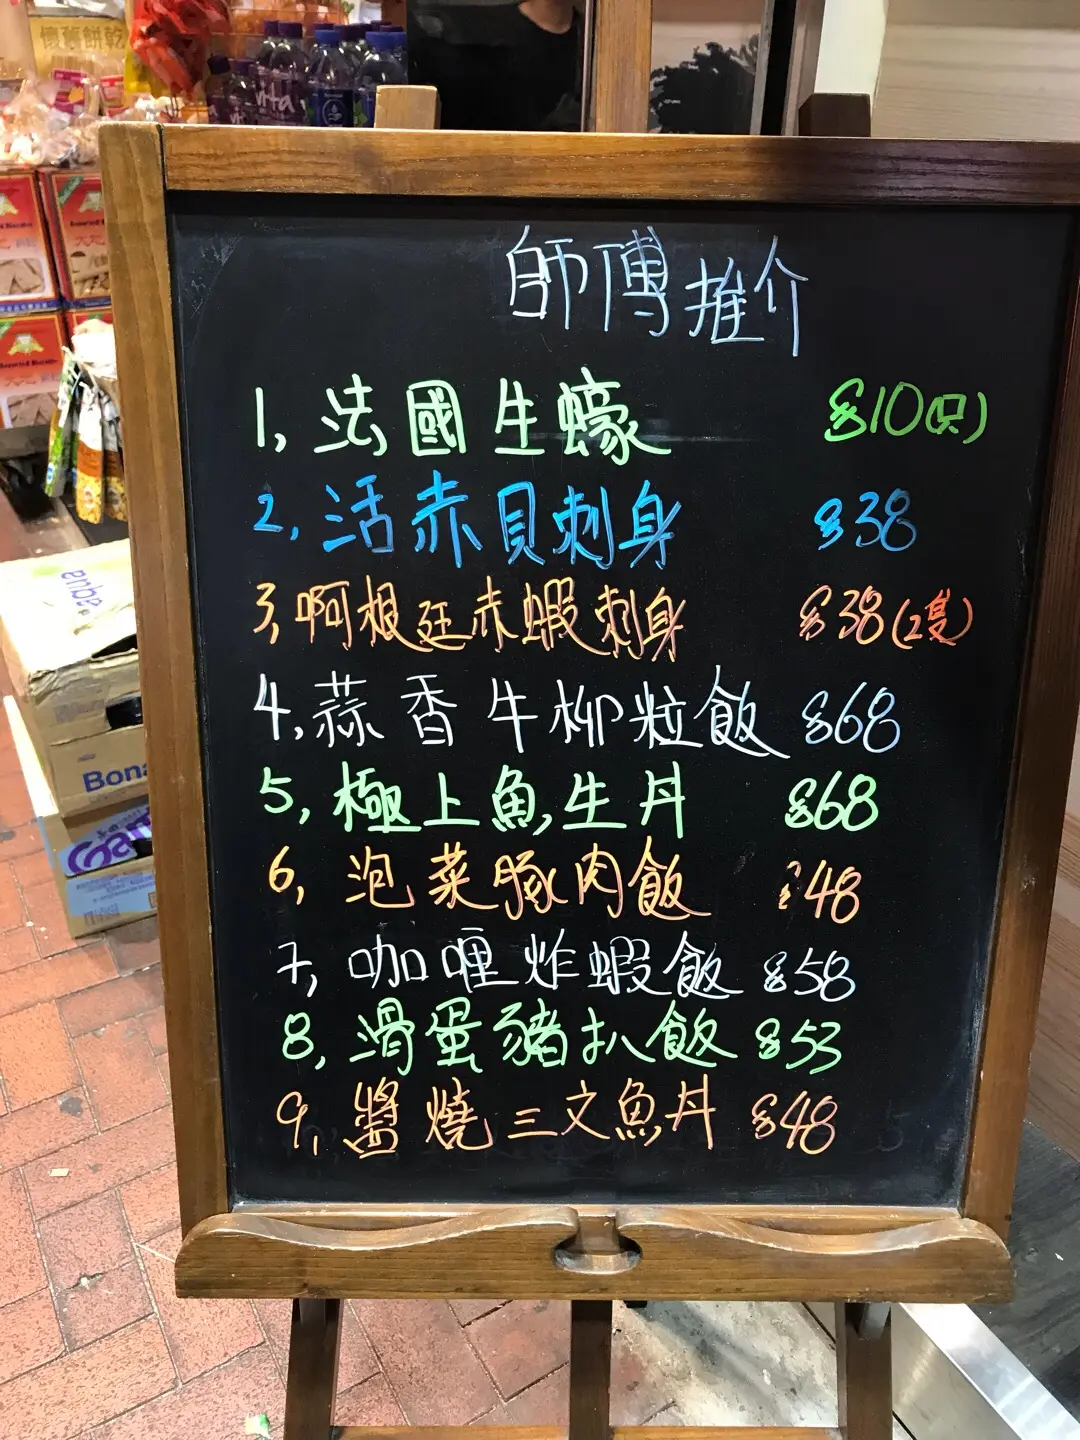 懷舊餅乾
vita
師傅推介
1, 法國生蠔 $10(只)
2, 活赤貝刺身 $38
3, 啊根廷赤蝦刺身 $38(2隻)
4, 蒜香牛柳粒飯 $68
5, 極上魚生丼 $68
6, 泡菜豚肉飯 $48
7, 咖喱炸蝦飯 $58
8, 滑蛋豬扒飯 $53
9, 醬燒三文魚丼 $48
aqua
Bona